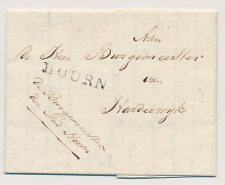 Aan
De Heer Burgemeester
van
Harderwijk
HOORN
De Burgemeester
der Stad Hoorn